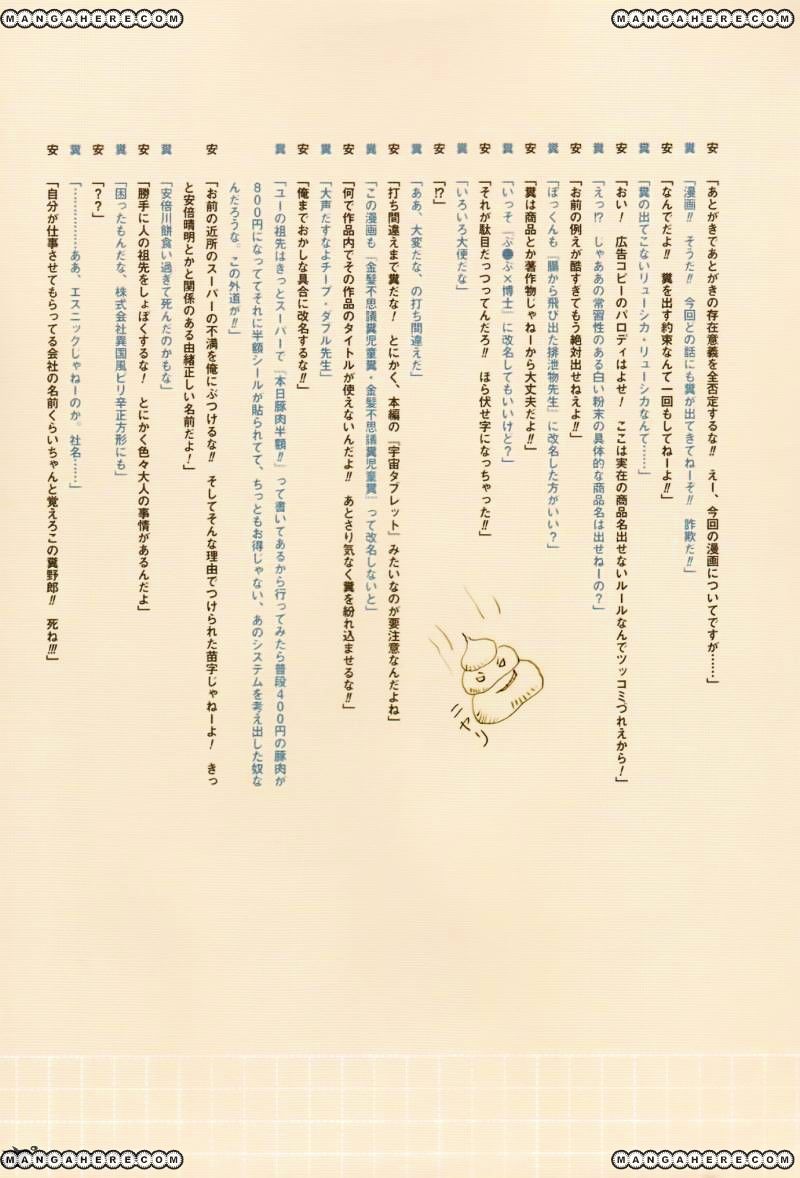 MANGAHERE.COM
MANGAHERE.COM
安「あとがきであとがきの存在意義を全否定するな!! えー、今回の漫画についてですが……」
糞「漫画!! そうだ!! 今回との話にも糞が出てきてねーぞ!! 詐欺だ!!」
安「なんでだよ!! 糞を出す約束なんて一回もしてねーよ!!」
糞「糞の出てこないリューシカ・リューシカなんて……」
安「おい! 広告コピーのパロディはよせ! ここは実在の商品名出せないルールなんでツッコミづれえから!」
糞「えっ!? じゃああの常習性のある白い粉末の具体的な商品名は出せねーの?」
安「お前の例えが酷すぎてもう絶対出せねえよ!!」
糞「ぼっくんも『腸から飛び出た排泄物先生』に改名した方がいい?」
安「糞は商品とか著作物じゃねーから大丈夫だよ!!」
糞「いっそ『ぷ●ぷ×博士』に改名してもいいけど?」
安「それが駄目だっつってんだろ!! ほら伏せ字になっちゃった!!」
糞「いろいろ大便だな」
安「!?」
糞「ああ、大変だな、の打ち間違えだ」
安「打ち間違えまで糞だな! とにかく、本編の『宇宙タブレット』みたいなのが要注意なんだよね」
糞「この漫画も『金髪不思議糞児童糞・金髪不思議糞児童糞』って改名しないと」
安「何で作品内でその作品のタイトルが使えないんだよ!! あとさり気なく糞を紛れ込ませるな!!」
糞「大声だすなよチープ・ダブル先生」
安「俺までおかしな具合に改名するな!!」
糞「ユーの祖先はきっとスーパーで『本日豚肉半額!!』って書いてあるから行ってみたら普段400円の豚肉が
800円になっててそれに半額シールが貼られてて、ちっともお得じゃない、あのシステムを考え出した奴な
んだろうな。この外道が!!」
安「お前の近所のスーパーの不満を俺にぶつけるな!! そしてそんな理由でつけられた苗字じゃねーよ! きっ
と安倍晴明とかと関係のある由緒正しい名前だよ!」
糞「安倍川餅食い過ぎて死んだのかもな」
安「勝手に人の祖先をしょぼくするな! とにかく色々大人の事情があるんだよ」
糞「困ったもんだな、株式会社異国風ピリ辛正方形にも」
安「??」
糞「……………ああ、エスニックじゃねーのか。社名……」
安「自分が仕事させてもらってる会社の名前くらいちゃんと覚えろこの糞野郎!! 死ね!!!」
ニヤリ
MANGAHERE.COM
MANGAHERE.COM